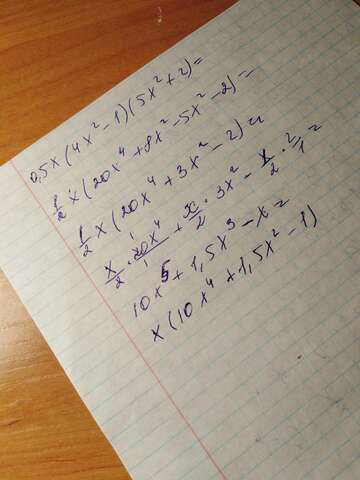 0,5x(4x²-1)(5x²+2)=
1/2 x(20x⁴+8x²-5x²-2)=
1/2 x(20x⁴+3x²-2)=
x/2 · 20x⁴/1 + x/2 · 3x² - x/2 · 2/1 =
10x⁵+1,5x³-x=
x(10x⁴+1,5x²-1)